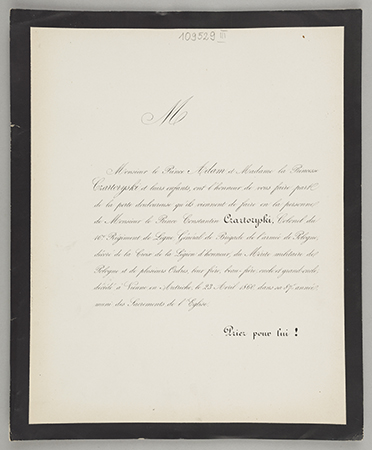 109529 III
M
Monsieur le Prince Adam et Madame la Princesse
Czartoryski et leurs enfants, ont l'honneur de vous faire part
de la perte douloureuse qu'ils viennent de faire en la personne
de Monsieur le Prince Constantin Czartoryski, Colonel du
16e Régiment de Ligne, Général de Brigade de l'armée de Pologne,
décoré de la Croix de la Légion d'honneur, du Mérite militaire de
Pologne et de plusieurs Ordres, leur frère, beau-frère, oncle et grand oncle,
décédé à Vienne en Autriche, le 23 Avril 1860, dans sa 87e année,
muni des Sacrements de l'Eglise.
Priez pour lui !